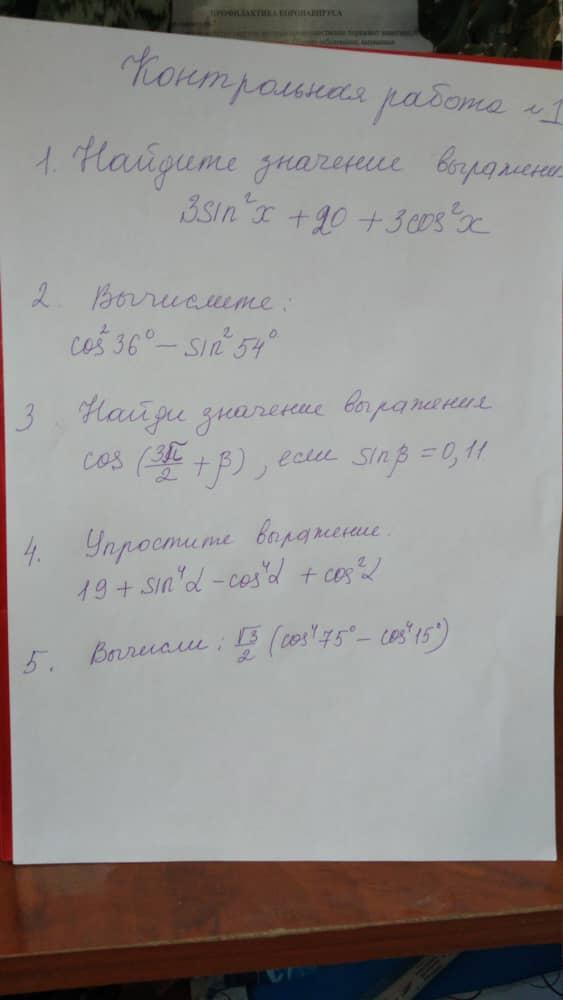 ПРОФИЛАКТИКА КОРОНАВИРУСА
Контрольная работа №1
1. Найдите значение выражени
3sin²x + 20 + 3cos²x
2. Вычислите:
cos²36° – sin²54°
3 Найди значение выражения
cos (3π/2 + β), если sinβ = 0,11
4. Упростите выражение.
19 + sin⁴α – cos⁴α + cos²α
5. Вычисли: √3/2 (cos⁴75° – cos⁴15°)